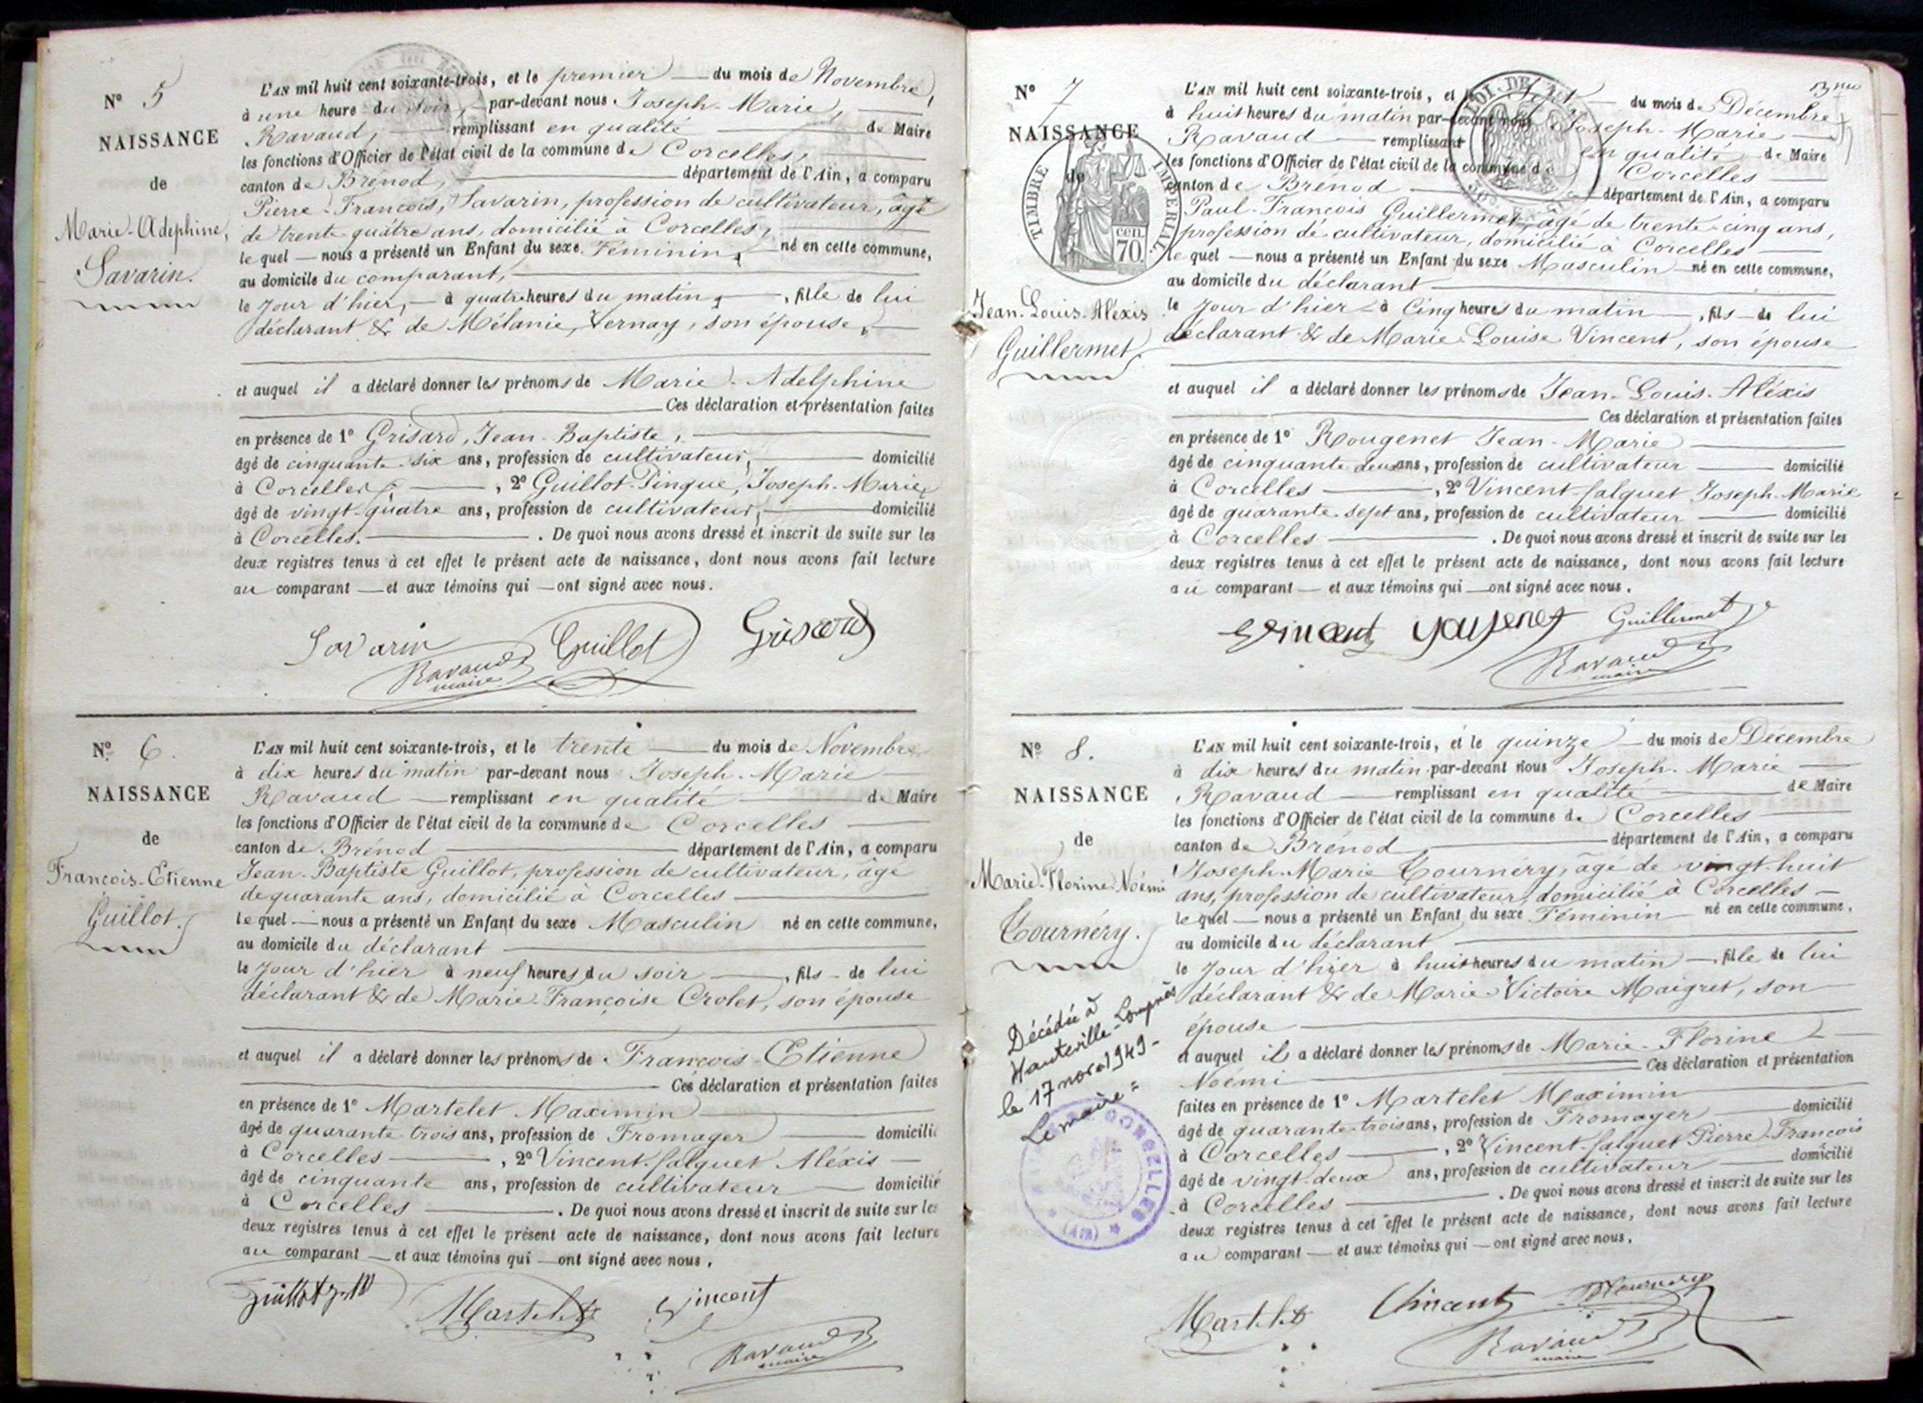 N° 5
NAISSANCE
de
Marie-Adelphine,
Savarin.
L'AN mil huit cent soixante-trois, et le premier du mois de Novembre,
à une heure du soir, par-devant nous Joseph-Marie,
Ravaud, remplissant en qualité de Maire
les fonctions d'Officier de l'état civil de la commune de Corcelles,
canton de Brénod, département de l'Ain, a comparu
Pierre-François, Savarin, profession de cultivateur, âgé
de trente-quatre ans, domicilié à Corcelles,
le quel nous a présenté un Enfant du sexe Féminin, né en cette commune,
au domicile du comparant,
le jour d'hier, à quatre heures du matin, fille de lui
déclarant & de Mélanie, Vernay, son épouse,
et auquel il a déclaré donner les prénoms de Marie-Adelphine
Ces déclaration et présentation faites
en présence de 1° Grisard, Jean-Baptiste,
âgé de cinquante-six ans, profession de cultivateur, domicilié
à Corcelles, 2° Guillot-Pingue, Joseph-Marie,
âgé de vingt-quatre ans, profession de cultivateur, domicilié
à Corcelles. De quoi nous avons dressé et inscrit de suite sur les
deux registres tenus à cet effet le présent acte de naissance, dont nous avons fait lecture
au comparant et aux témoins qui ont signé avec nous.
Savarin Guillot Grisard
Ravaud
maire
N° 6.
NAISSANCE
de
François-Etienne
Guillot.
L'AN mil huit cent soixante-trois, et le trente du mois de Novembre
à dix heures du matin par-devant nous Joseph-Marie
Ravaud remplissant en qualité de Maire
les fonctions d'Officier de l'état civil de la commune de Corcelles
canton de Brénod département de l'Ain, a comparu
Jean-Baptiste Guillot, profession de cultivateur, âgé
de quarante ans, domicilié à Corcelles
le quel nous a présenté un Enfant du sexe Masculin né en cette commune,
au domicile du déclarant
le jour d'hier à neuf heures du soir, fils de lui
déclarant & de Marie-Françoise Crolet, son épouse
et auquel il a déclaré donner les prénoms de François-Etienne
Ces déclaration et présentation faites
en présence de 1° Martelet Maximin
âgé de quarante-trois ans, profession de Fromager domicilié
à Corcelles, 2° Vincent-falquet Aléxis
âgé de cinquante ans, profession de cultivateur domicilié
à Corcelles. De quoi nous avons dressé et inscrit de suite sur les
deux registres tenus à cet effet le présent acte de naissance, dont nous avons fait lecture
au comparant et aux témoins qui ont signé avec nous.
Guillot Martelet Vincent
Ravaud
maire
N° 7
NAISSANCE
de
TIMBRE IMPERIAL
cen.
70.
Jean-Louis-Aléxis
Guillermet.
L'AN mil huit cent soixante-trois, et le sept du mois de Décembre
à huit heures du matin par-devant nous Joseph-Marie
Ravaud remplissant en qualité de Maire
les fonctions d'Officier de l'état civil de la commune de Corcelles
canton de Brénod département de l'Ain, a comparu
Paul-François Guillermet, âgé de trente-cinq ans,
profession de cultivateur, domicilié à Corcelles
le quel nous a présenté un Enfant du sexe Masculin né en cette commune,
au domicile du déclarant
le jour d'hier à Cinq heures du matin, fils de lui
déclarant & de Marie-Louise Vincent, son épouse
et auquel il a déclaré donner les prénoms de Jean-Louis-Aléxis
Ces déclaration et présentation faites
en présence de 1° Rougenet Jean-Marie
âgé de cinquante deux ans, profession de cultivateur domicilié
à Corcelles, 2° Vincent-falquet Joseph-Marie
âgé de quarante-sept ans, profession de cultivateur domicilié
à Corcelles. De quoi nous avons dressé et inscrit de suite sur les
deux registres tenus à cet effet le présent acte de naissance, dont nous avons fait lecture
au comparant et aux témoins qui ont signé avec nous.
Vincent Rougenet Guillermet
Ravaud
maire
N° 8.
NAISSANCE
de
Marie-Florine-Noémi
Tournéry.
Décédée à
Hauteville-Lompnès
le 17 nov 1949-
Le maire=
L'AN mil huit cent soixante-trois, et le quinze du mois de Décembre
à dix heures du matin par-devant nous Joseph-Marie
Ravaud remplissant en qualité de Maire
les fonctions d'Officier de l'état civil de la commune de Corcelles
canton de Brénod département de l'Ain, a comparu
Joseph-Marie Tournéry, âgé de vingt-huit
ans, profession de cultivateur, domicilié à Corcelles
le quel nous a présenté un Enfant du sexe Féminin né en cette commune,
au domicile du déclarant
le jour d'hier à huit heures du matin, fille de lui
déclarant & de Marie-Victoire Maigret, son
épouse
et auquel il a déclaré donner les prénoms de Marie-Florine
Noémi Ces déclaration et présentation
faites en présence de 1° Martelet Maximin
âgé de quarante-trois ans, profession de Fromager domicilié
à Corcelles, 2° Vincent-falquet Pierre-François
âgé de vingt-deux ans, profession de cultivateur domicilié
à Corcelles. De quoi nous avons dressé et inscrit de suite sur les
deux registres tenus à cet effet le présent acte de naissance, dont nous avons fait lecture
au comparant et aux témoins qui ont signé avec nous.
Martelet Vincent Tournéry
Ravaud
maire